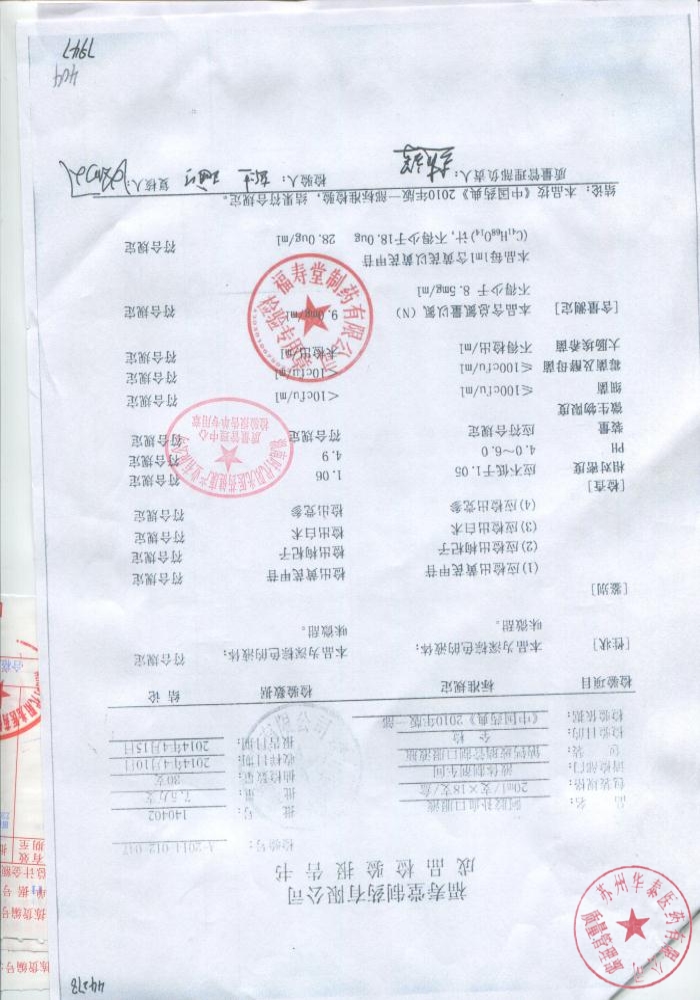 福寿堂制药有限公司
成品检验报告书
检验号:
品 名: 阿胶补血口服液 批 号: 140402
包装规格: 20ml/支×18支/盒 批 量: 7.5万支
请验部门: 液体制剂车间 抽检数量: 30支
包 装: 钠钙玻璃管制口服液瓶 收样日期: 2014年4月10日
检验目的: 全 检 报告日期: 2014年4月15日
检验依据: 《中国药典》2010年版一部
检验项目 标准规定 检验数据 结 论
[性状] 本品为深棕色的液体; 本品为深棕色的液体; 符合规定
味微甜。 味微甜。
[鉴别]
(1)应检出黄芪甲苷 检出黄芪甲苷 符合规定
(2)应检出枸杞子 检出枸杞子 符合规定
(3)应检出白术 检出白术 符合规定
(4)应检出党参 检出党参 符合规定
[检查]
相对密度 应不低于1.05 1.06 符合规定
PH 4.0~6.0 4.9 符合规定
装量 应符合规定 符合规定 符合规定
微生物限度
细菌 ≤100cfu/ml <10cfu/ml 符合规定
霉菌及酵母菌 ≤100cfu/ml <10cfu/ml 符合规定
大肠埃希菌 不得检出/ml 未检出/ml 符合规定
[含量测定] 本品含总氮量以氮(N) 9.0mg/ml 符合规定
不得少于 8.5mg/ml
本品每1ml含黄芪以黄芪甲苷
(C₄₁H₆₈O₁₄)计,不得少于18.0ug 28.0ug/ml 符合规定
结论:本品按《中国药典》2010年版一部标准检验,结果符合规定。
质量管理部负责人: 检验人: 复核人:
福寿堂制药有限公司
检验专用章
质量管理中心
检验报告单专用章
苏州华泰医药有限公司
质量管理部
拣货编号:
拣货编号
单据号
总计金额
有效
期至
批
合格
44278
404
7947